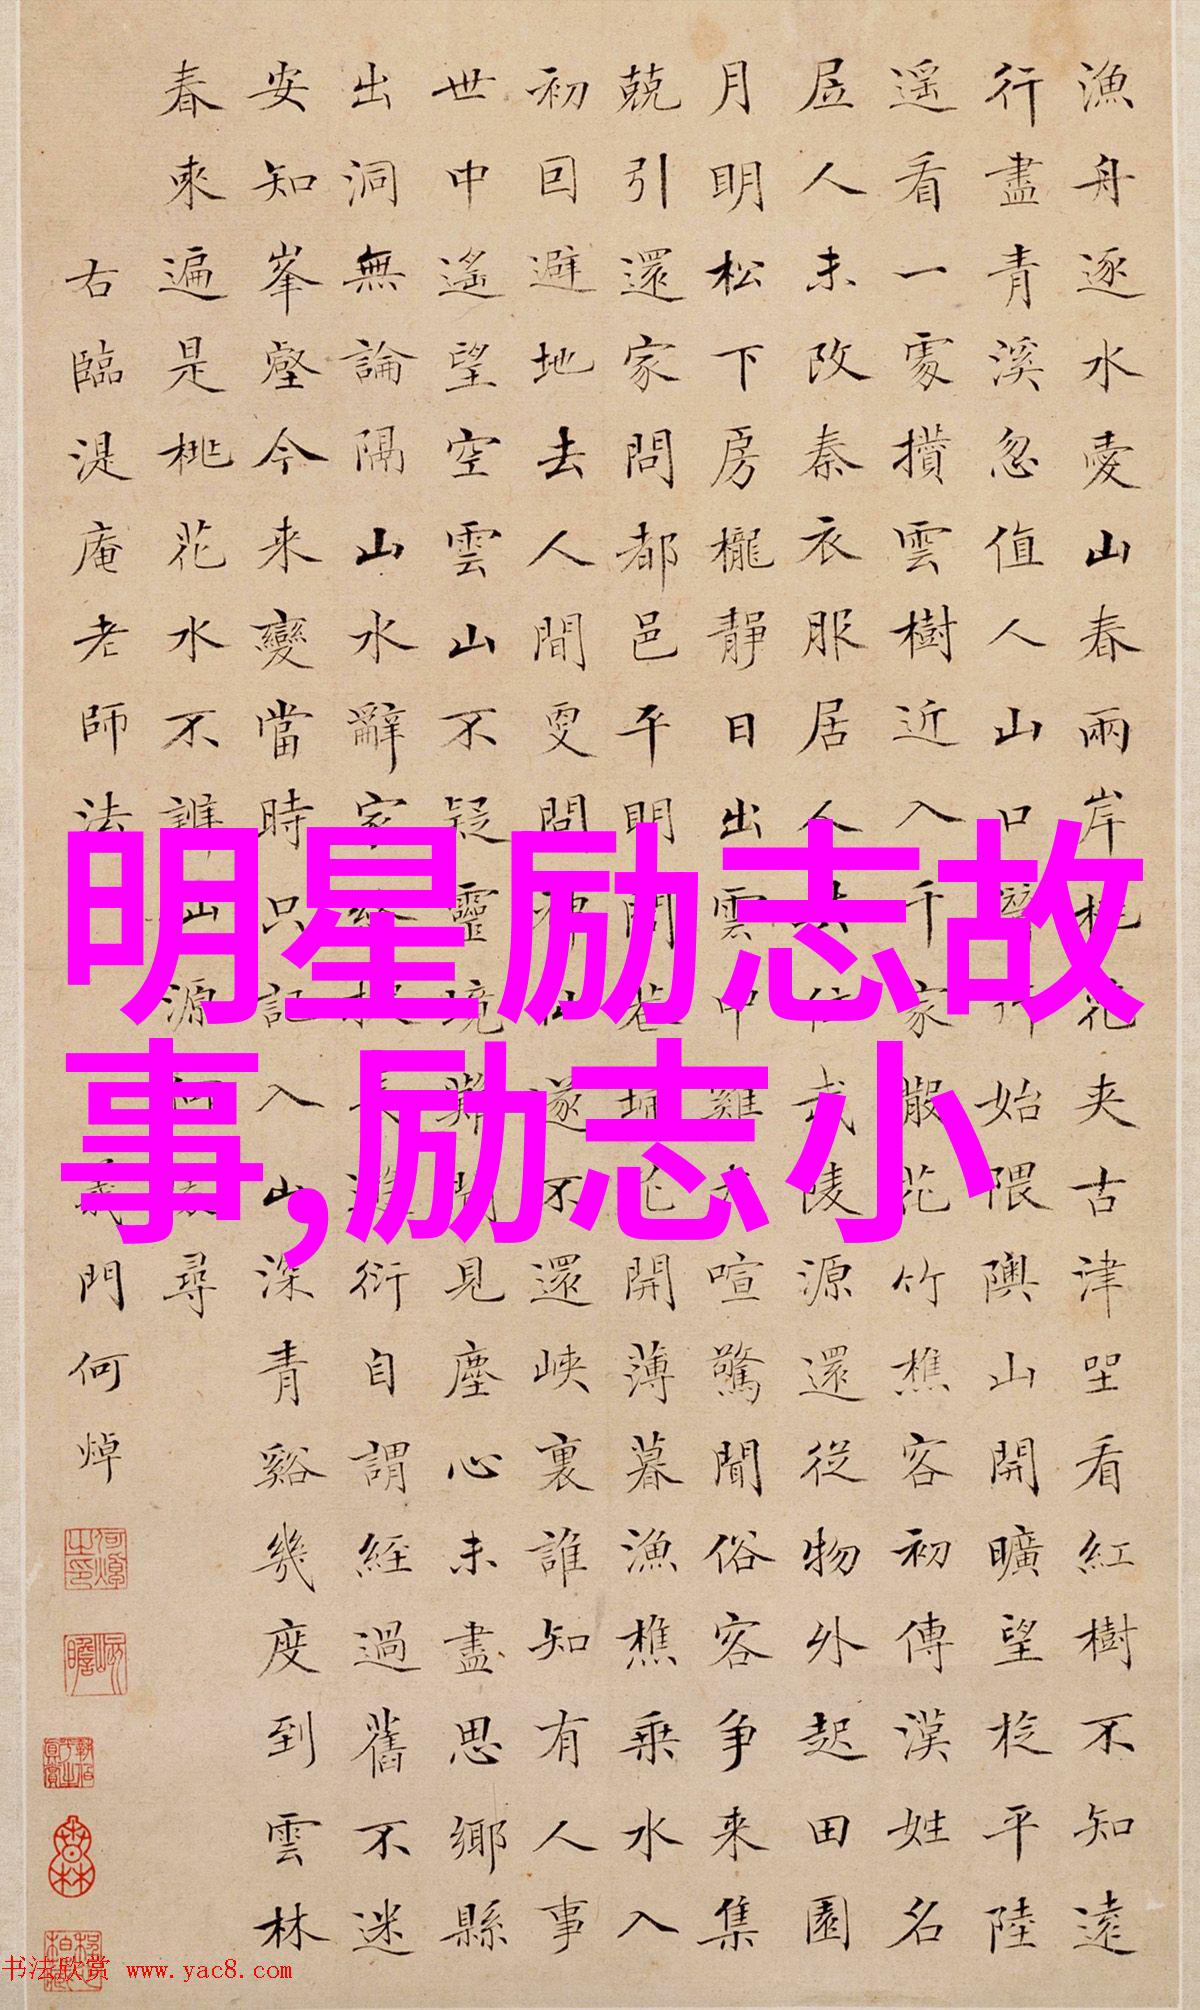 漁舟逐水愛山春兩岸桃花夾古津坐看紅樹不知遠
行盡青溪忽值人山口行始隈隩山開曠望旋平陸
遥看一處攢雲樹近入千家散花竹樵客初傳漢姓名
居人未改秦衣服居人共住武陵源還從物外起田園
月明松下房櫳靜日出雲中雞犬喧驚聞俗客争来集
兢引還家問都邑平明閭巷掃花開薄暮漁樵乗水入
初因避地去人間更問神仙遂不還峽裏誰知有人事
世中遙望空雲山不疑靈境難聞見塵心未盡思鄉縣
出洞無論隔山水辭家終擬長遊衍自謂經過舊不迷
安知峯壑今来變當時只記入山深青谿幾度到雲林
春來遍是桃花水不仙源何處尋
右臨湜庵老師法義門何焯
明星励志故
事,励志小
书法欣赏 www.yac8.com